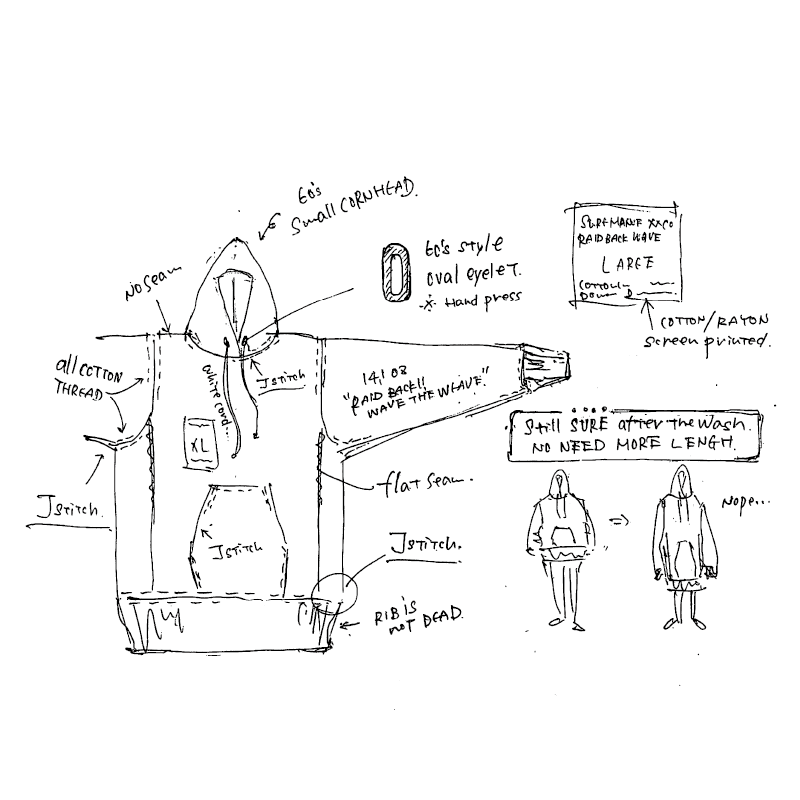 60's
Small CORNHEAD.
NO SEAM
60's style
oval eyelet.
Hand press
RAID BACK WAVE
LARGE
COTTON
DOWN
COTTON/RAYON
screen printed.
all COTTON
THREAD
White cord...
J STITCH
14,1 oz
"RAID BACK!!
WAVE THE WEAVE."
XL
Still SURE after the wash.
NO NEED MORE LENGH.
flat seam.
J STITCH.
J STITCH
J STITCH.
NOPE...
RIB IS
NOT DEAD.